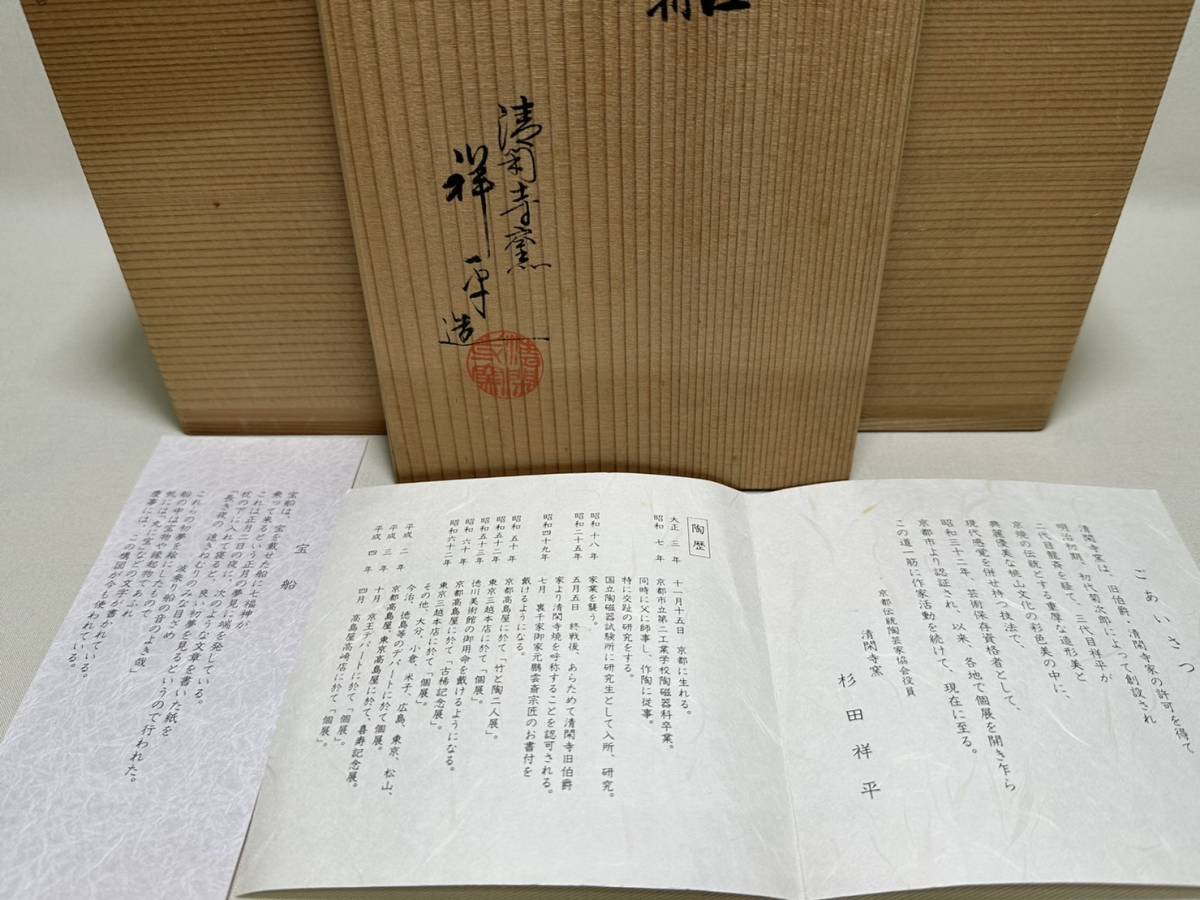 清閑寺窯
祥平造
ごあいさつ
清閑寺窯は、旧伯爵・清閑寺家の許可を得て
明治初期、初代菊次郎によって創設され
二代目龍斎を経て、三代目祥平が
京焼の伝統とする重厚な造形美と
典麗優美な桃山文化の彩色美の中に、
現代感覚を併せ持つ技法で、
昭和三十二年、芸術保存資格者として、
京都市より認証され、以来、各地で個展を開き乍ら
この道一筋に作家活動を続けて、現在に至る。
京都伝統陶芸家協会役員
清閑寺窯
杉田祥平
陶歴
大正三年 十一月十五日 京都に生れる。
昭和七年 京都市立第二工業学校陶磁器科卒業。
同時に父に師事し、作陶に従事。
特に交趾の研究をする。
昭和十八年 国立陶磁器試験所に研究生として入所、研究。
家業を襲う。
昭和二十五年 五月五日 終戦後、あらためて清閑寺旧伯爵
家より清閑寺焼を呼称することを認可される。
昭和四十九年 七月 裏千家御家元鵬雲斎宗匠のお書付を
戴けるようになる。
昭和五十年 京都高島屋に於て「竹と陶二人展」。
昭和五十二年 東京三越本店に於て「個展」。
昭和五十三年 徳川美術館の御用命を戴けるようになる。
昭和六十年 京都高島屋に於て「古稀記念展」。
昭和六十二年 東京三越本店に於て「個展」。
その他、大分、小倉、米子、広島、東京、松山、
今治、徳島等のデパートに於て個展。
平成二年 京都高島屋、東京高島屋に於て、喜寿記念展。
平成三年 十月 京王デパートに於て「個展」。
平成四年 四月 高島屋高崎店に於て「個展」。
宝船
宝船は、宝を載せた船に七福神が
乗って来るという正月の夢見に端を発している。
これは正月二日の夜に、次のような文章を書いた紙を
枕の下に入れて寝ると、良い初夢を見るというので行われた。
「長き夜の 遠きねむりの みな目ざめ
波乗り船の 音のよき哉」
これらの初夢を絵にしたもので
船の中は宝物や縁起物であふれ
帆には、丸に"宝"などの文字が書かれている。
慶事には、この構図が今も使われている。